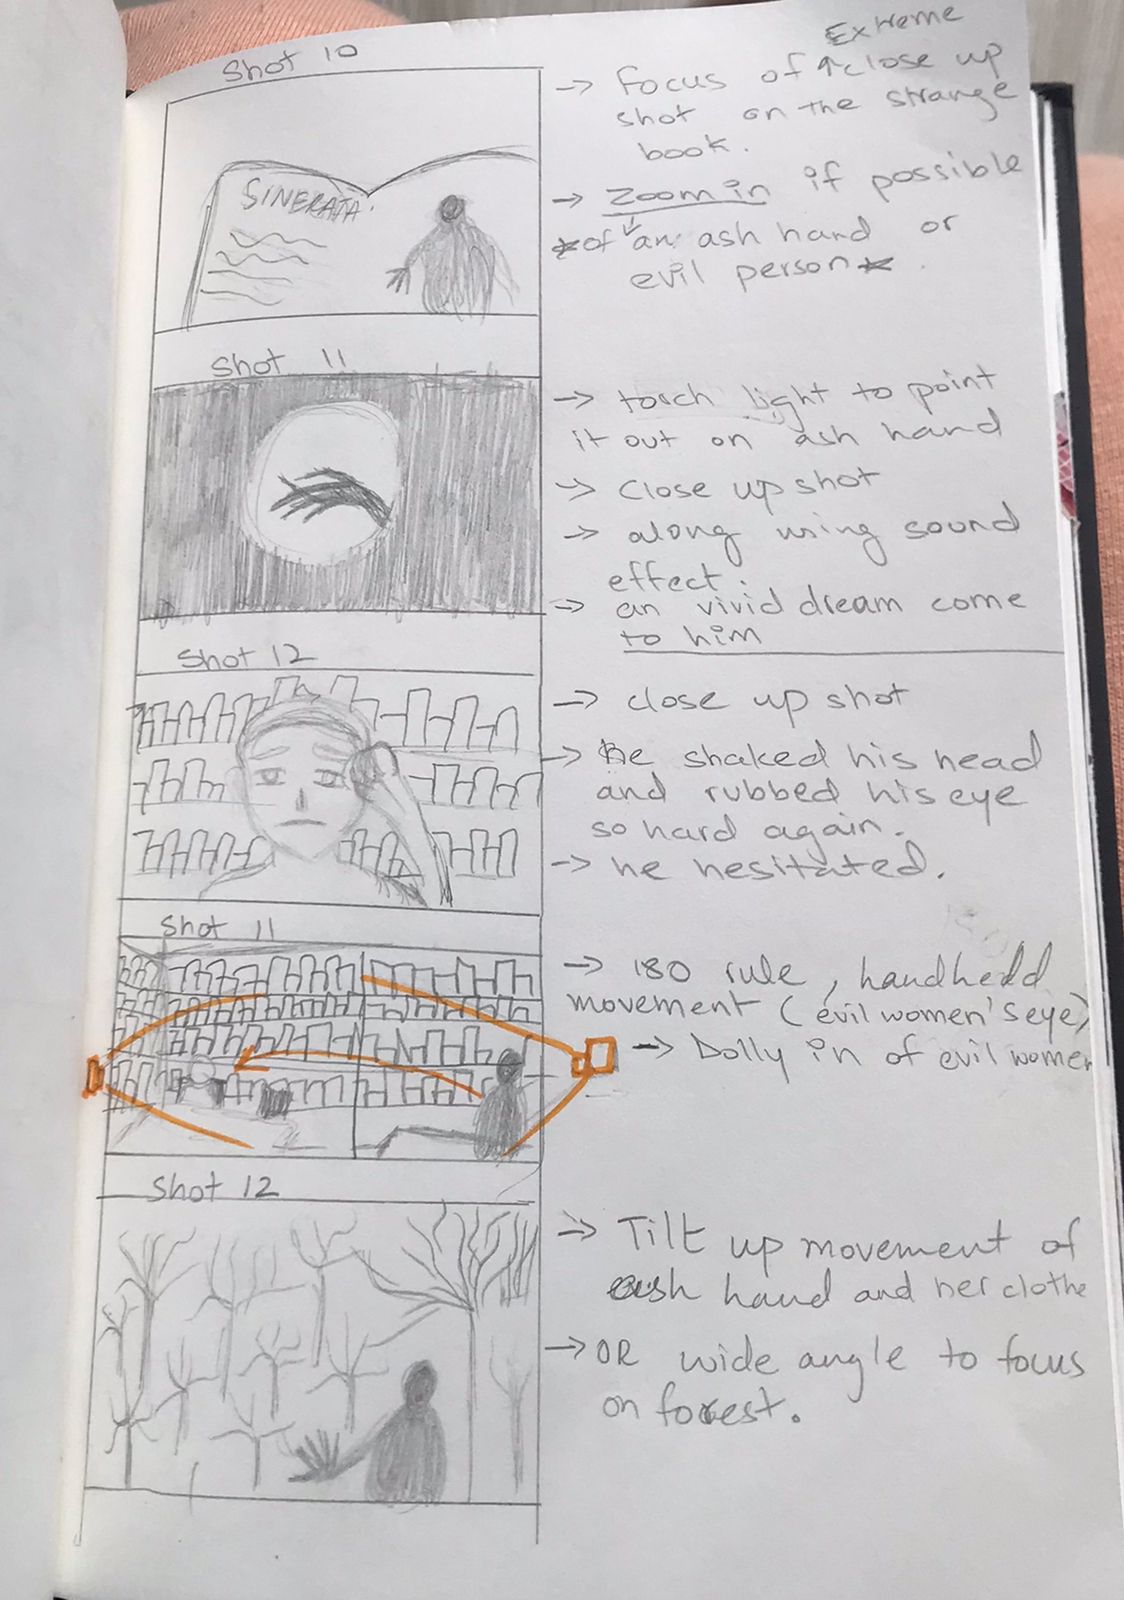 Shot 10
SINERATA
Extreme
→ Focus of ↑close up
shot on the strange
book.
→ Zoom in if possible
*of an ash hand or
evil person*.
Shot 11
→ torch light to point
it out on ash hand
→ Close up shot
→ along using sound
effect.
→ an vivid dream come
to him
Shot 12
→ close up shot
→ He shaked his head
and rubbed his eye
so hard again.
→ he hesitated.
Shot 11
→ 180 rule, handhedd
movement (evil women's eye)
→ Dolly in of evil women
Shot 12
→ Tilt up movement of
ash hand and her clothe
→ OR wide angle to focus
on forest.